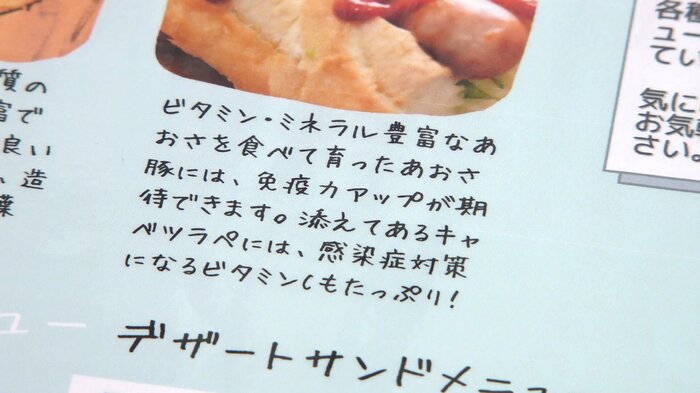 ビタミン・ミネラル豊富なあ
おさを食べて育ったあおさ
豚には、免疫力アップが期
待できます。添えてあるキャ
ベツラペには、感染症対策
になるビタミンCもたっぷり!
デザートサンドメニュ
質の
富で
良い
、造
葉
ュー
各種
ュー
てい
気に
お気軽
さい。